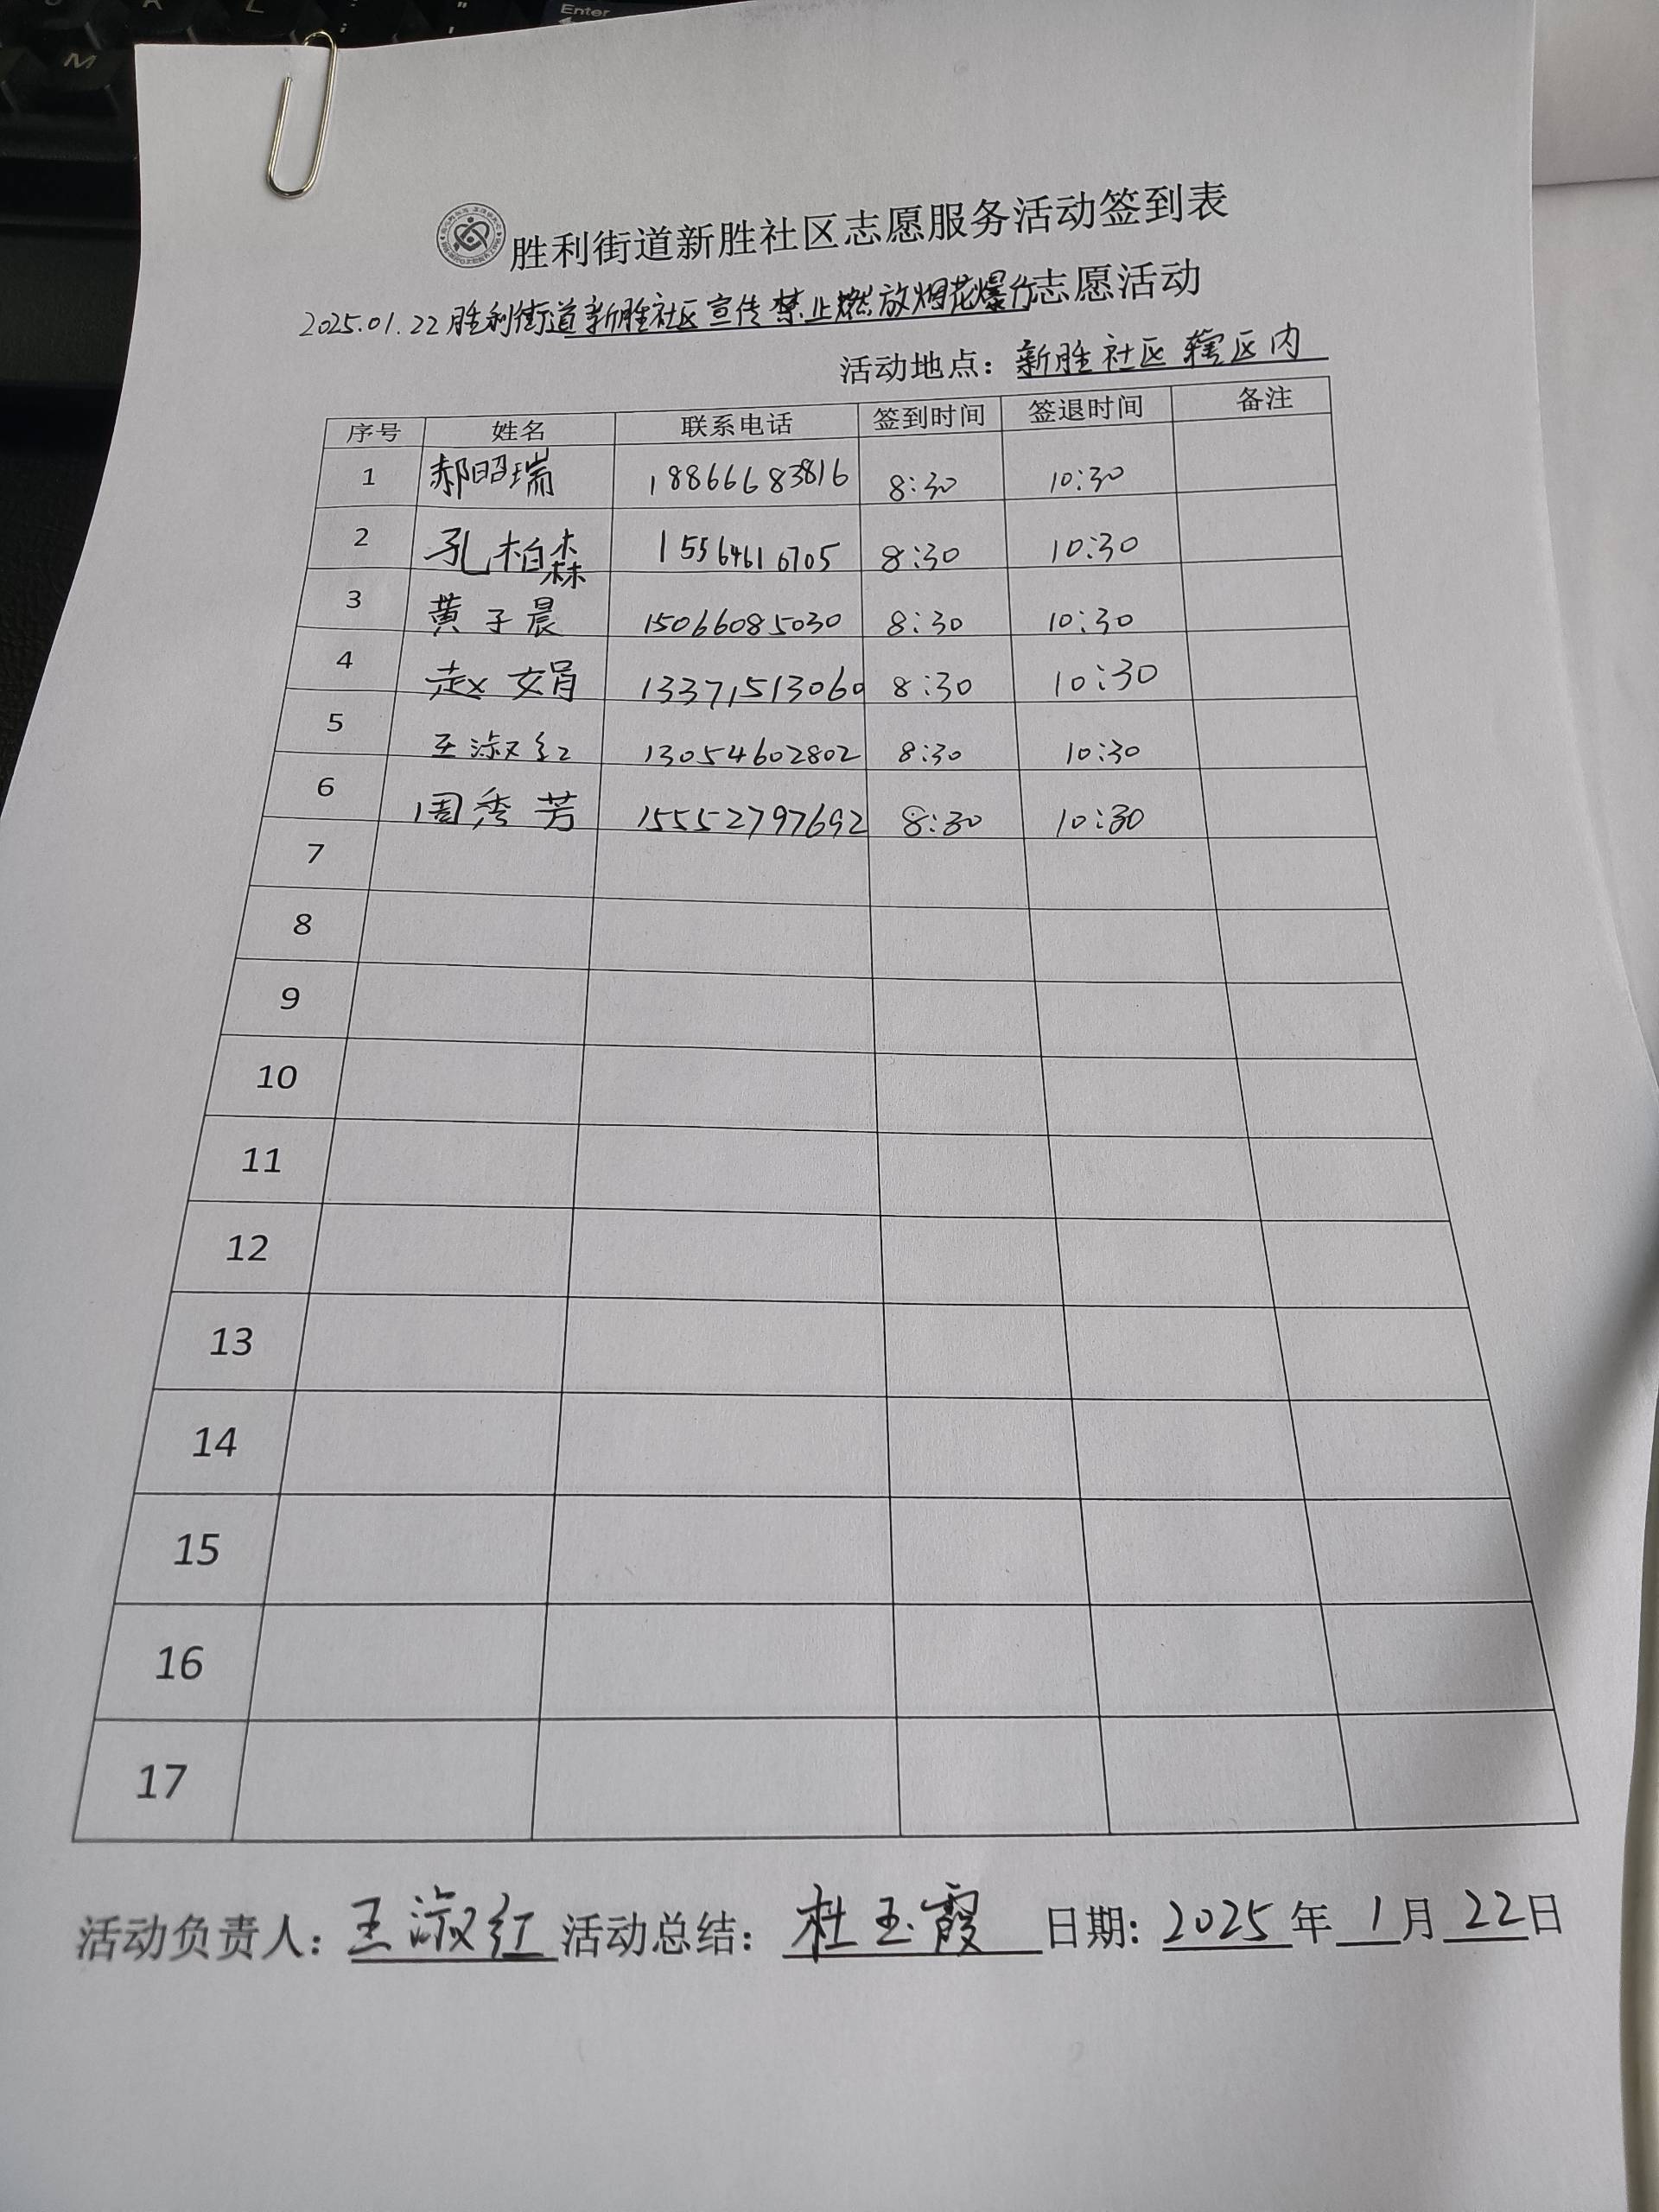 Enter
M
胜利街道新胜社区志愿服务活动签到表
2025.01.22胜利街道新胜社区宣传禁止燃放烟花爆竹志愿活动
活动地点：新胜社区辖区内
序号 姓名 联系电话 签到时间 签退时间 备注
1 郝昭瑞 18866683816 8:30 10:30
2 孔柏森 15564616705 8:30 10:30
3 黄子晨 15066085030 8:30 10:30
4 赵文娟 13371513060 8:30 10:30
5 王淑红 13054602802 8:30 10:30
6 周秀芳 15552797692 8:30 10:30
7
8
9
10
11
12
13
14
15
16
17
活动负责人：王淑红 活动总结：杜玉霞 日期：2025年1月22日